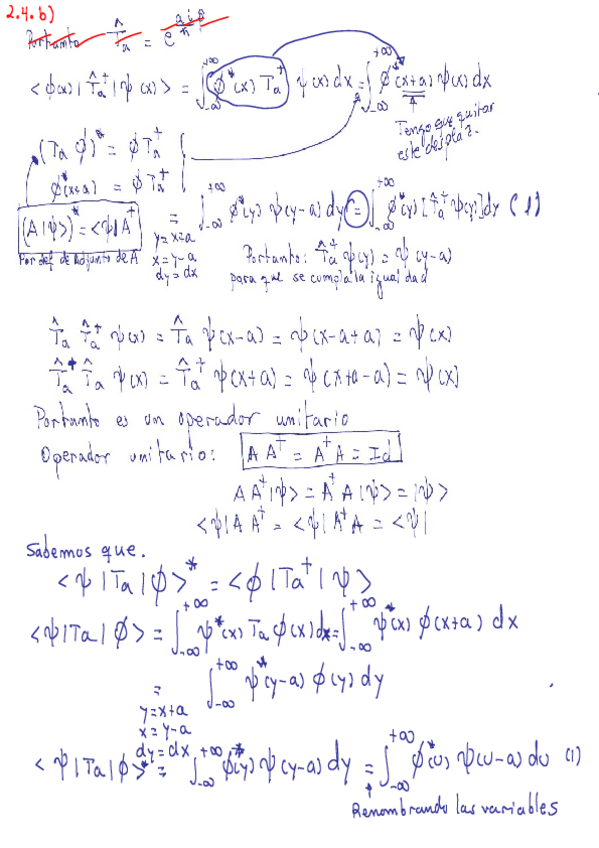 2.4.b)
Portanto T̂a = e^(a i p̂/ħ)
<ϕ(x)|T̂a†|ψ(x)> = ∫_{-∞}^{+∞} ϕ*(x) Ta† ψ(x) dx = ∫_{-∞}^{+∞} ϕ*(x+a) ψ(x) dx
Tengo que quitar
este desplaz.
(Ta ϕ)* = ϕ Ta†
ϕ*(x+a) = ϕ Ta†
(A|ψ>)* = <ψ|A†
Por def de Adjunto de A
= ∫_{-∞}^{+∞} ϕ*(y) ψ(y-a) dy = ∫_{-∞}^{+∞} ϕ*(y) [T̂a† ψ(y)] dy (1)
y=x=a
x=y-a
dy=dx
Portanto: T̂a† ψ(y) = ψ(y-a)
para que se cumpla la igualdad
T̂a T̂a† ψ(x) = T̂a ψ(x-a) = ψ(x-a+a) = ψ(x)
T̂a† T̂a ψ(x) = T̂a† ψ(x+a) = ψ(x+a-a) = ψ(x)
Portanto es un operador unitario
Operador unitario: A A† = A† A = Id
A A†|ψ> = A† A|ψ> = |ψ>
<ψ|A A† = <ψ|A† A = <ψ|
Sabemos que.
<ψ|Ta|ϕ>* = <ϕ|Ta†|ψ>
<ψ|Ta|ϕ> = ∫_{-∞}^{+∞} ψ*(x) Ta ϕ(x) dx = ∫_{-∞}^{+∞} ψ*(x) ϕ(x+a) dx
= ∫_{-∞}^{+∞} ψ*(y-a) ϕ(y) dy
y=x+a
x=y-a
dy=dx
<ψ|Ta|ϕ>* = ∫_{-∞}^{+∞} ϕ*(y) ψ(y-a) dy = ∫_{-∞}^{+∞} ϕ*(u) ψ(u-a) du (1)
Renombrando las variables